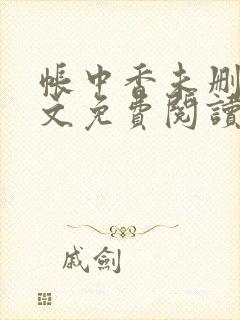 帳中香未刪
文免費閱讀
戚劍